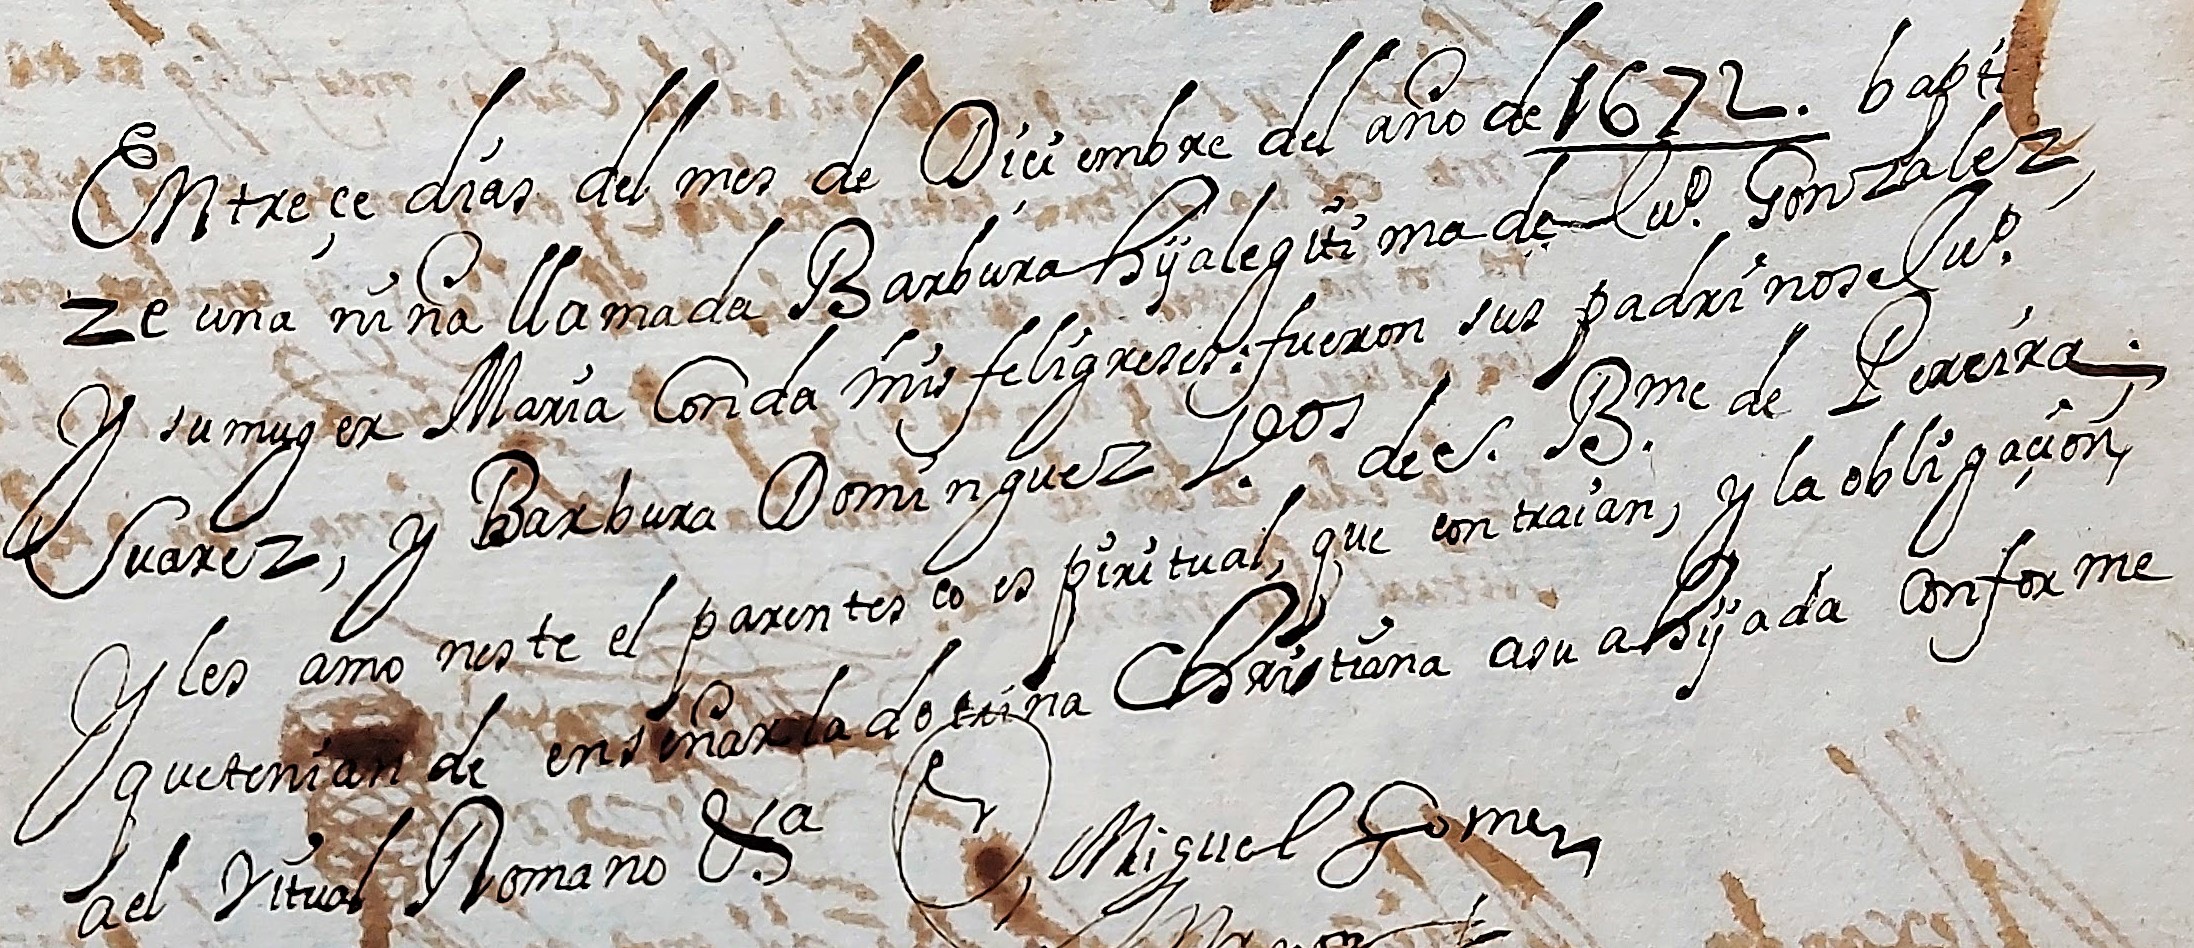 En treçe dias del mes de Diciembre del año de 1672. bapti
ze una niña llamada Barbura hija legitima de Lu.º Gonzalez,
y su muger Maria Conda mis feligreses: fueron sus padrinos el Lu.º
Suarez, y Barbura Dominguez V.os de S. B.me de Pereira.
y les amoneste el parentesco espiritual, que contraian, y la obligaçion,
que tenian de enseñar la dotrina Christiana a su ahijada conforme
a el Ritual Romano &.a Miguel Gomez